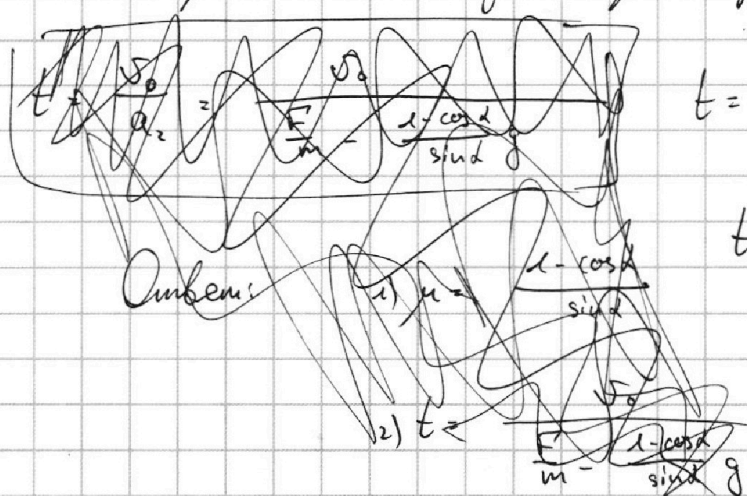 t = \frac{v_0}{a_2} = \frac{v_0}{\frac{F}{m} - \frac{1-\cos\alpha}{\sin\alpha} g}
t =
t
Ответ: 1) μ = \frac{1-\cos\alpha}{\sin\alpha}
2) t = \frac{v_0}{\frac{F}{m} - \frac{1-\cos\alpha}{\sin\alpha} g}